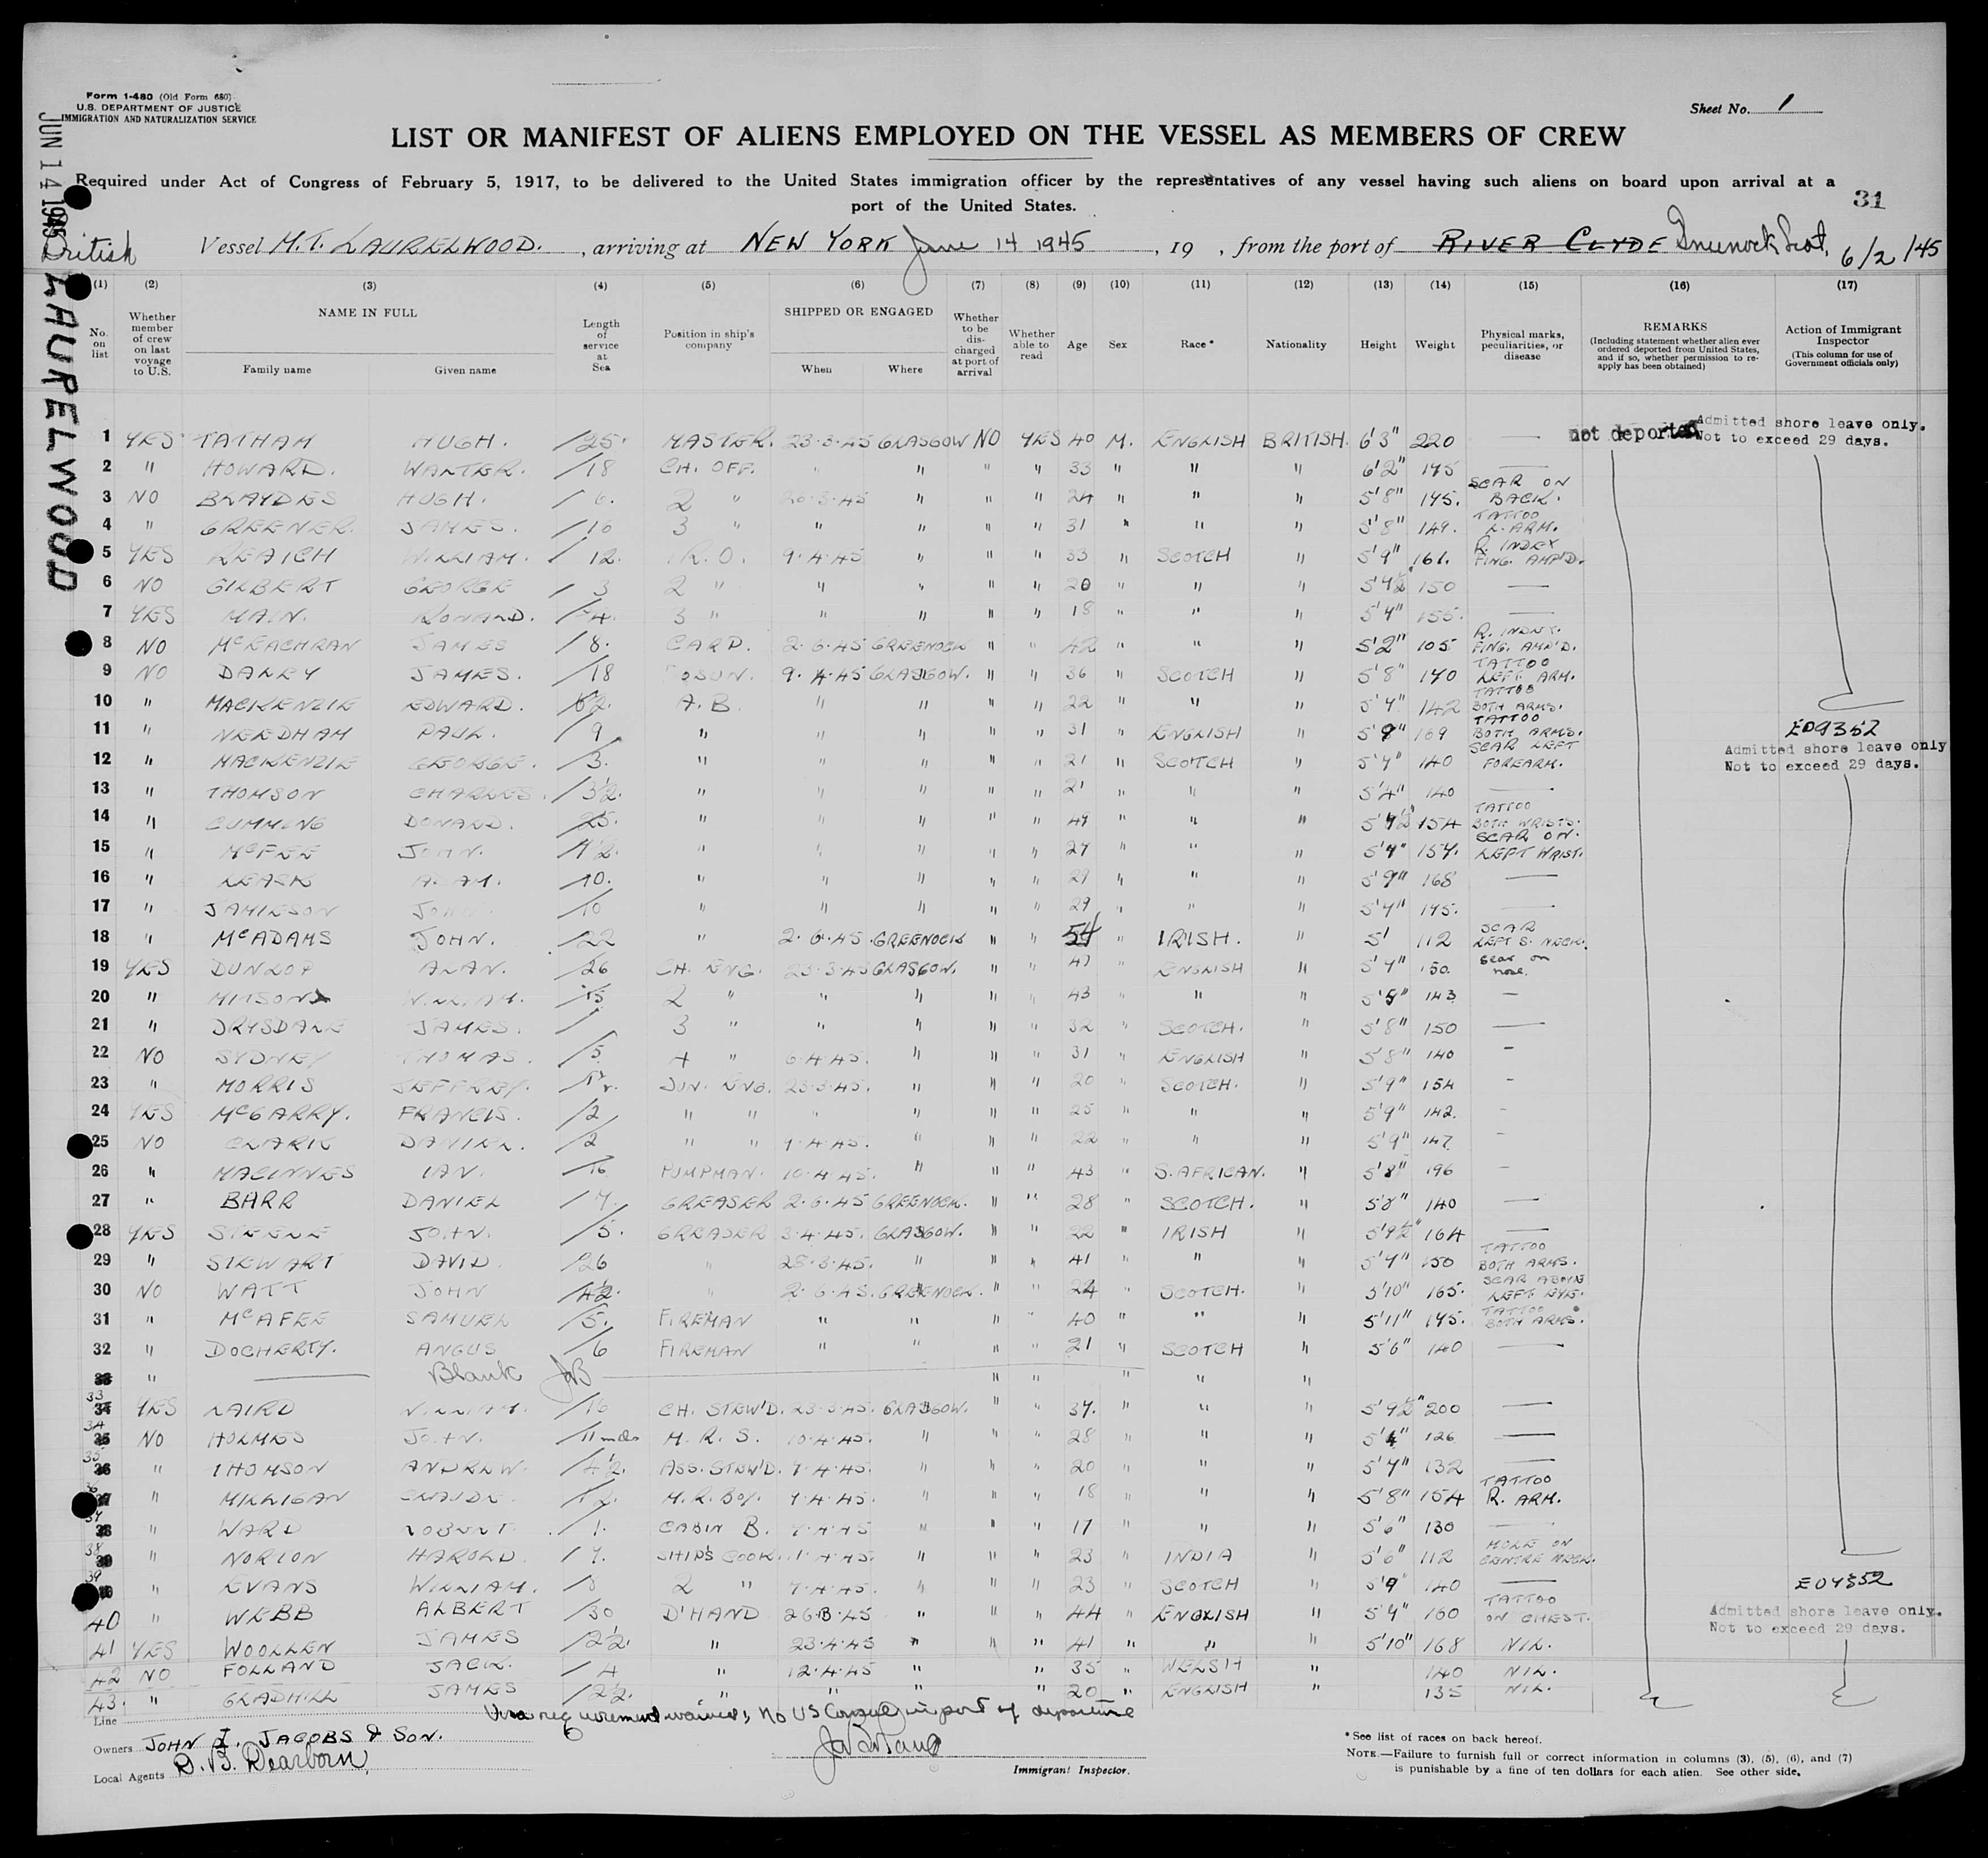 Form I-480 (Old Form 680)
U.S. DEPARTMENT OF JUSTICE
IMMIGRATION AND NATURALIZATION SERVICE
Sheet No. 1
JUN 14 1945
LIST OR MANIFEST OF ALIENS EMPLOYED ON THE VESSEL AS MEMBERS OF CREW
Required under Act of Congress of February 5, 1917, to be delivered to the United States immigration officer by the representatives of any vessel having such aliens on board upon arrival at a
port of the United States.
31
British
LAURELWOOD
Vessel M.T. LAURELWOOD. , arriving at NEW YORK June 14 1945 , 19 , from the port of RIVER CLYDE Greenock Scot, 6/2/45
(1) (2) (3) (4) (5) (6) (7) (8) (9) (10) (11) (12) (13) (14) (15) (16) (17)
No. on list
Whether member of crew on last voyage to U.S.
NAME IN FULL
Family name Given name
Length of service at Sea
Position in ship's company
SHIPPED OR ENGAGED
When Where
Whether to be discharged at port of arrival
Whether able to read
Age
Sex
Race *
Nationality
Height
Weight
Physical marks, peculiarities, or disease
REMARKS
(Including statement whether alien ever ordered deported from United States, and if so, whether permission to reapply has been obtained)
Action of Immigrant Inspector
(This column for use of Government officials only)
1 YES TATHAM HUGH. 25. MASTER. 23.3.45 GLASGOW NO YES 40 M. ENGLISH BRITISH. 6'3" 220 — not deported Admitted shore leave only. Not to exceed 29 days.
2 " HOWARD. WALTER. 18 CH. OFF. " " " " 33 " " " 6'2" 175 —
3 NO BLAYDES HUGH. 6. 2 " 20.3.45 " " " 24 " " " 5'8" 175. SCAR ON BACK.
4 " GREENER. JAMES. 10 3 " " " " " 31 " " " 5'8" 149. TATTOO L. ARM.
5 YES REAICH WILLIAM. 12. 1 R.O. 9.4.45 " " " 33 " SCOTCH " 5'9" 161. R. INDEX FING. AMP'D.
6 NO GILBERT GEORGE 3 2 " " " " " 20 " " " 150 —
7 YES MAIN. RONALD. 4. 3 " " " " " 18 " " " 5'7" 155. —
8 NO McEACHRAN JAMES 8. CARP. 2.6.45 GREENOCK " " 42 " " " 5'2" 105 R. INDEX. FING. AMP'D.
9 NO DALRY JAMES. 18 BOSUN. 9.4.45 GLASGOW. " " 36 " SCOTCH " 5'8" 170 TATTOO LEFT ARM.
10 " MACKENZIE EDWARD. A.B. " " " " 22 " " " 5'7" 142 TATTOO BOTH ARMS.
11 " NEEDHAM PAUL. 9 " " " " " 31 " ENGLISH " 169 TATTOO BOTH ARMS.
12 " MACKENZIE GEORGE. 3. " " " " " 21 " SCOTCH " 5'7" 140 SCAR LEFT FOREARM.
E09352
Admitted shore leave only
Not to exceed 29 days.
13 " THOMSON CHARLES. 3½. " " " " " 21 " " " 5'4" 140 —
14 " CUMMING DONALD. 25. " " " " " 49 " " " 154 TATTOO BOTH WRISTS.
15 " McFEE JOHN. " " " " " 27 " " " 157. SCAR ON. LEFT WRIST.
16 " LEASK ADAM. 10. " " " " " 29 " " " 5'9" 168 —
17 " JAMIESON JOHN 10 " " " " " 29 " " " 5'7" 175. —
18 " McADAMS JOHN. 22 " 2.6.45. GREENOCK " " 54 " IRISH. " 5' 112 SCAR LEFT S. NECK.
19 YES DUNLOP ALAN. 26 CH. ENG. 23.3.45 GLASGOW. " " 47 " ENGLISH " 5'7" 150. Scar on nose.
20 " WILLIAM. 15 2 " " " " " 43 " " " 143 —
21 " DRYSDALE JAMES. 3 " " " " " 32 " SCOTCH. " 5'8" 150 —
22 NO SYDNEY THOMAS. 5 4 " 6.4.45. " " " 31 " ENGLISH " 5'8" 140 —
23 " MORRIS JEFFREY. JUN. ENG. 23.3.45. " " " 20 " SCOTCH. " 5'9" 154 —
24 YES McGARRY. FRANCIS. 2 " " " " " " 25 " " " 5'9" 142. —
25 NO CLARK DANIEL. 2 " " 9.4.45. " " " 22 " " " 5'9" 147. —
26 " MACINNES IAN. 16 PUMPMAN. 10.4.45. " " " 43 " S. AFRICAN. " 5'8" 196 —
27 " BARR DANIEL 7. GREASER 2.6.45 GREENOCK. " " 28 " SCOTCH. " 5'8" 140 —
28 YES STEELE JOHN. 5. GREASER 3.4.45. GLASGOW. " " 22 " IRISH " 5'9½" 164 —
29 " STEWART DAVID 26 " 28.3.45. " " " 41 " " " 5'7" 150 TATTOO BOTH ARMS.
30 NO WATT JOHN 4½. " 2.6.45. GREENOCK. " " 24 " SCOTCH. " 5'10" 165. SCAR ABOVE LEFT EYE.
31 " McAFEE SAMUEL 5. FIREMAN " " " " 40 " " " 5'11" 175. TATTOO BOTH ARMS.
32 " DOCHERTY. ANGUS 6 FIREMAN " " " " 21 " SCOTCH " 5'6" 140 —
33 " — Blank JB — " " " " "
33 YES LAIRD WILLIAM. 16 CH. STEW'D. 23.3.45. GLASGOW. " " 37. " " " 5'9½" 200 —
34 NO HOLMES JOHN. 11 mths M.R.S. 10.4.45. " " " 28 " " " 126 —
35 " THOMSON ANDREW. 4½. ASS. STEW'D. 9.4.45. " " " 20 " " " 5'7" 132 —
36 " MILLIGAN CLAUDE. M.R. BOY. 9.4.45. " " " 18 " " " 5'8" 154 TATTOO R. ARM.
37 " WARD ROBERT. 1. CABIN B. 9.4.45 " " " 17 " " " 5'6" 130 —
38 " NORTON HAROLD. 7. SHIP'S COOK. " " " 23 " INDIA " 5'6" 112 MOLE ON CENTRE NECK.
39 " EVANS WILLIAM. 2 " 9.4.45. " " " 23 " SCOTCH " 5'9" 140 —
E09352
40 " WEBB ALBERT 30 D'HAND 26.3.45 " " " 44 " ENGLISH " 5'7" 160 TATTOO ON CHEST.
Admitted shore leave only.
Not to exceed 29 days.
41 YES WOOLLEN JAMES 2½. " 23.4.45 " " " 41 " " " 5'10" 168 NIL.
42 NO FOLLAND JACK. 4 " 12.4.45 " " 35 " WELSH " 140 NIL.
43. " GLADHILL JAMES 2½. " " " " 20 " ENGLISH " 135 NIL.
Visa requirement waived, no US Consul in port of departure
Line
Owners JOHN I. JACOBS & SON.
Local Agents D.B. Dearborn
Immigrant Inspector.
* See list of races on back hereof.
NOTE.—Failure to furnish full or correct information in columns (3), (5), (6), and (7)
is punishable by a fine of ten dollars for each alien. See other side.